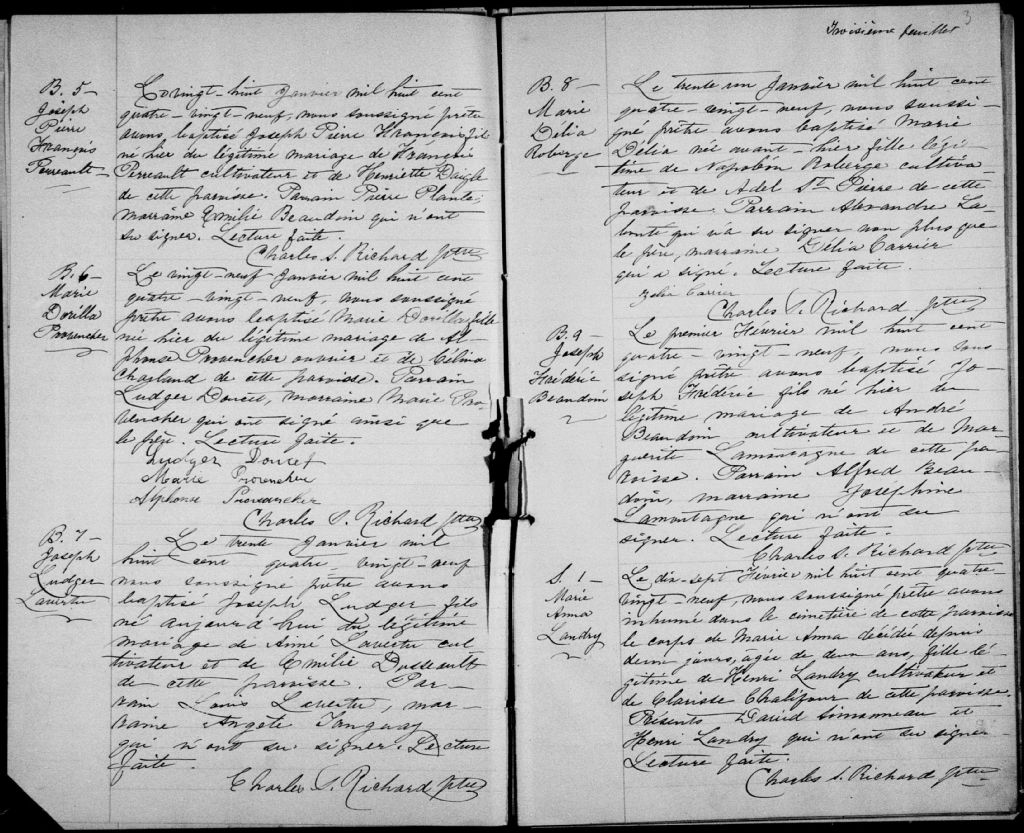 B. 5 –
Joseph
Pierre
François
Perreault –
Le vingt-huit Janvier mil huit cent
quatre-vingt-neuf, nous soussigné prêtre
avons baptisé Joseph Pierre François fils
né hier du légitime mariage de François
Perreault cultivateur et de Henriette Daigle
de cette paroisse. Parrain Pierre Plante,
marraine Emilie Beaudoin qui n'ont
su signer. Lecture faite.
Charles S. Richard Ptre
B. 6 –
Marie
Dorilla
Provencher
Le vingt-neuf Janvier mil huit cent
quatre-vingt-neuf, nous soussigné
prêtre avons baptisé Marie Dorilla fille
née hier du légitime mariage de Al-
phonse Provencher ouvrier et de Célina
Charland de cette paroisse. Parrain
Ludger Doucet, marraine Marie Pro-
vencher qui ont signé ainsi que
le père. Lecture faite.
Ludger Doucet
Marie Provencher
Alphonse Provencher
Charles S. Richard Ptre
B. 7 –
Joseph
Ludger
Lavertu
Le trente Janvier mil
huit cent quatre-vingt-neuf
nous soussigné prêtre avons
baptisé Joseph Ludger fils
né aujourd'hui du légitime
mariage de Aimé Lavertu cul
tivateur et de Emilie Dusseault
de cette paroisse. Par-
rain Louis Lavertu, mar-
raine Angèle Tanguay
qui n'ont su signer. Lecture
faite.
Charles S. Richard Ptre
3
Troisième feuillet
B. 8 –
Marie
Délia
Roberge
Le trente un Janvier mil huit cent
quatre-vingt-neuf, nous soussi-
gné, prêtre avons baptisé Marie
Délia née avant-hier fille légi-
time de Napoléon Roberge cultiva-
teur et de Adel St Pierre de cette
paroisse. Parrain Alexandre La-
brute qui n'a su signer non plus que
le père, marraine Délia Carrier
qui a signé. Lecture faite.
Zelia Carrier
Charles S. Richard Ptre
B. 9
Joseph
Frédéric
Beaudoin
Le premier Février mil huit cent
quatre-vingt-neuf, nous sous
signé prêtre avons baptisé Jo-
seph Frédéric fils né hier du
légitime mariage de André
Beaudoin cultivateur et de Mar-
guerite Lamontagne de cette pa-
roisse. Parrain Alfred Beau-
doin, marraine Joséphine
Lamontagne qui n'ont su
signer. Lecture faite.
Charles S. Richard Ptre
S. 1 –
Marie
Anna
Landry
Le dix-sept Février mil huit cent quatre
vingt-neuf, nous soussigné prêtre avons
inhumé dans le cimetière de cette paroisse
le corps de Marie Anna décédée depuis
deux jours, âgée de deux ans, fille lé-
gitime de Henri Landry cultivateur et
de Clarisse Chalifour de cette paroisse.
Présents David Simoneau et
Henri Landry qui n'ont su signer
Lecture faite.
Charles S. Richard Ptre